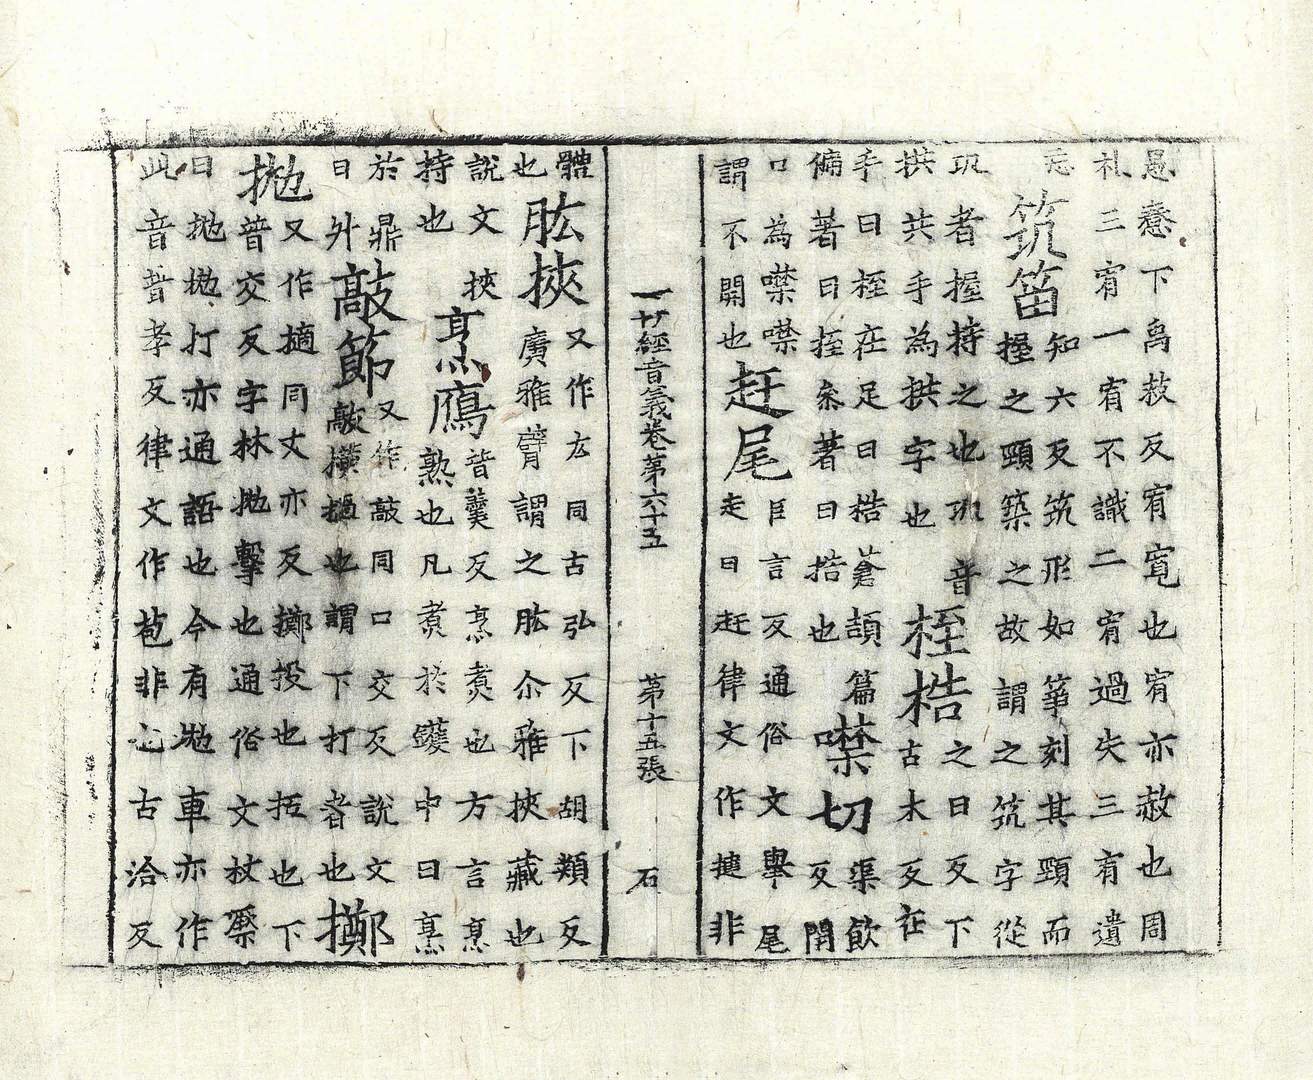 愚憃下禹赦反宥寬也宥亦赦也周
礼三宥一宥不識二宥過失三有遺
忘
筑笛
知六反筑形如筝刻其頸而
握之頸築之故謂之筑字從
巩者握持之也巩音
拱共手為拱字也
桎梏
之日反下
古木反在
手曰桎在足曰梏蒼頡篇
著曰挃桒著曰捁也
噤切
渠飲
反閇
口為噤噤
謂不開也
赶尾
巨言反通俗文舉尾
走曰赶律文作揵非
一廿經音義卷第六十五 第十五張 石
體
也
肱挾
又作厷同古弘反下胡頰反
廣雅臂謂之肱尒雅挾藏也
說文挾
持也
烹鴈
普羹反烹煮也方言烹
熟也凡煮於鑊中曰烹
於鼎
曰外
敲節
又作敲同口交反說文
敲橫撾也謂下打者也
擲
拋
又作擿同丈亦反擲投也也下
普交反字林拋擊也通俗文杖槩
曰拋拋打亦通語也今有拋車亦作
此音普孝反律文作苞非也古洽反